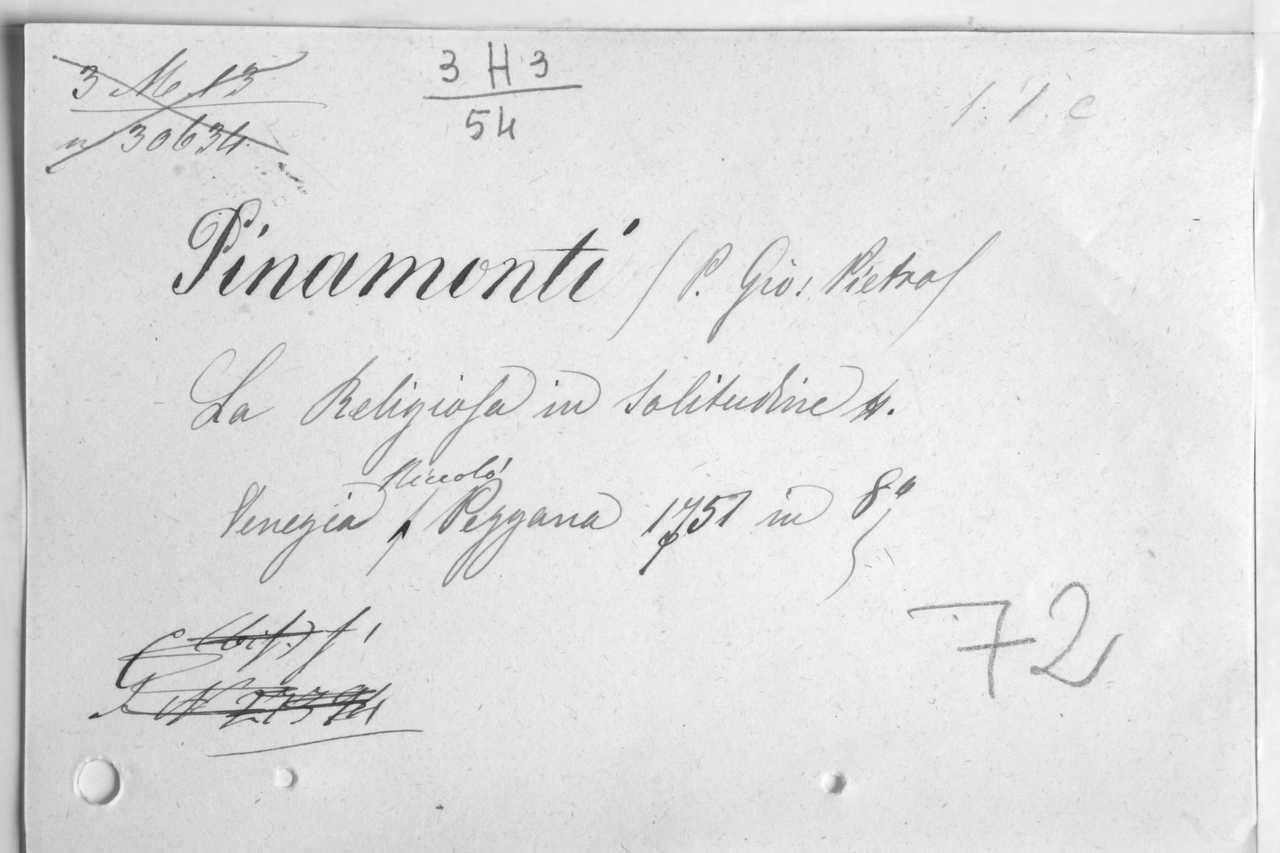 3 M 13
n 30634
3 H 3
54
1. 1. c
Pinamonti (P. Gio: Pietro)
La Religiosa in Solitudine
Niccolò
Venezia Pezzana 1757 in 8º
72
(bis)
N 27394